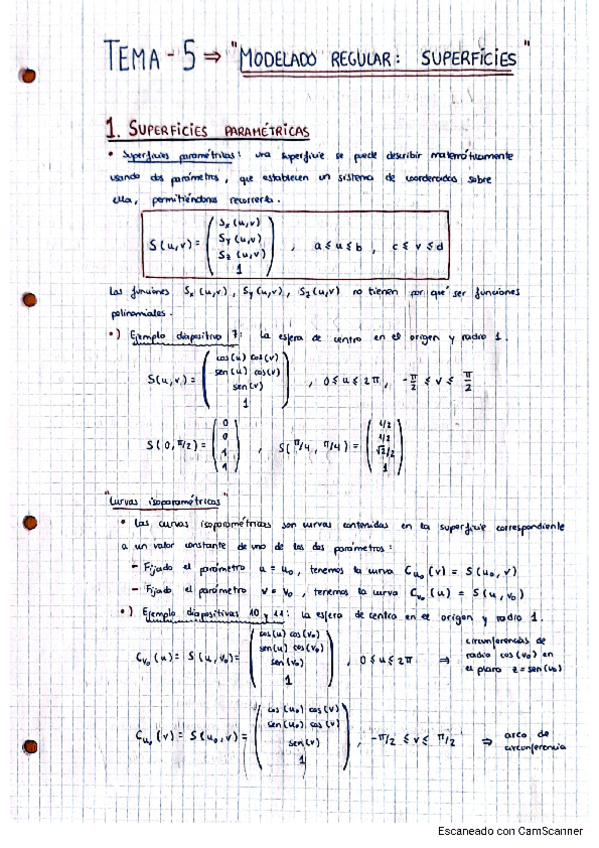 TEMA - 5 ⇒ "MODELADO REGULAR: SUPERFICIES"
1. SUPERFICIES PARAMÉTRICAS
• Superficies paramétricas: una superficie se puede describir matemáticamente
usando dos parámetros, que establecen un sistema de coordenadas sobre
ella, permitiéndonos recorrerla.
S(u,v) = ( Sx (u,v) Sy (u,v) Sz (u,v) 1 ) , a ≤ u ≤ b , c ≤ v ≤ d
Las funciones Sx (u,v), Sy (u,v), Sz (u,v) no tienen por qué ser funciones
polinomiales.
•) Ejemplo diapositiva 7: La esfera de centro en el origen y radio 1.
S(u,v) = ( cos(u) cos(v) sen(u) cos(v) sen(v) 1 ) , 0 ≤ u ≤ 2π , -π/2 ≤ v ≤ π/2
S(0, π/2) = ( 0 0 1 1 ) , S(π/4, π/4) = ( 1/2 1/2 √2/2 1 )
"Curvas isoparamétricas"
• Las curvas isoparamétricas son curvas contenidas en la superficie correspondiente
a un valor constante de uno de los dos parámetros:
- Fijado el parámetro u = u₀, tenemos la curva Cu₀ (v) = S(u₀, v)
- Fijado el parámetro v = v₀, tenemos la curva Cv₀ (u) = S(u, v₀)
•) Ejemplo diapositivas 10 y 11: La esfera de centro en el origen y radio 1.
Cv₀ (u) = S(u, v₀) = ( cos(u) cos(v₀) sen(u) cos(v₀) sen(v₀) 1 ) , 0 ≤ u ≤ 2π ⇒ circunferencias de
radio cos(v₀) en
el plano z = sen(v₀)
Cu₀ (v) = S(u₀, v) = ( cos(u₀) cos(v) sen(u₀) cos(v) sen(v) 1 ) , -π/2 ≤ v ≤ π/2 ⇒ arco de
circunferencia
Escaneado con CamScanner